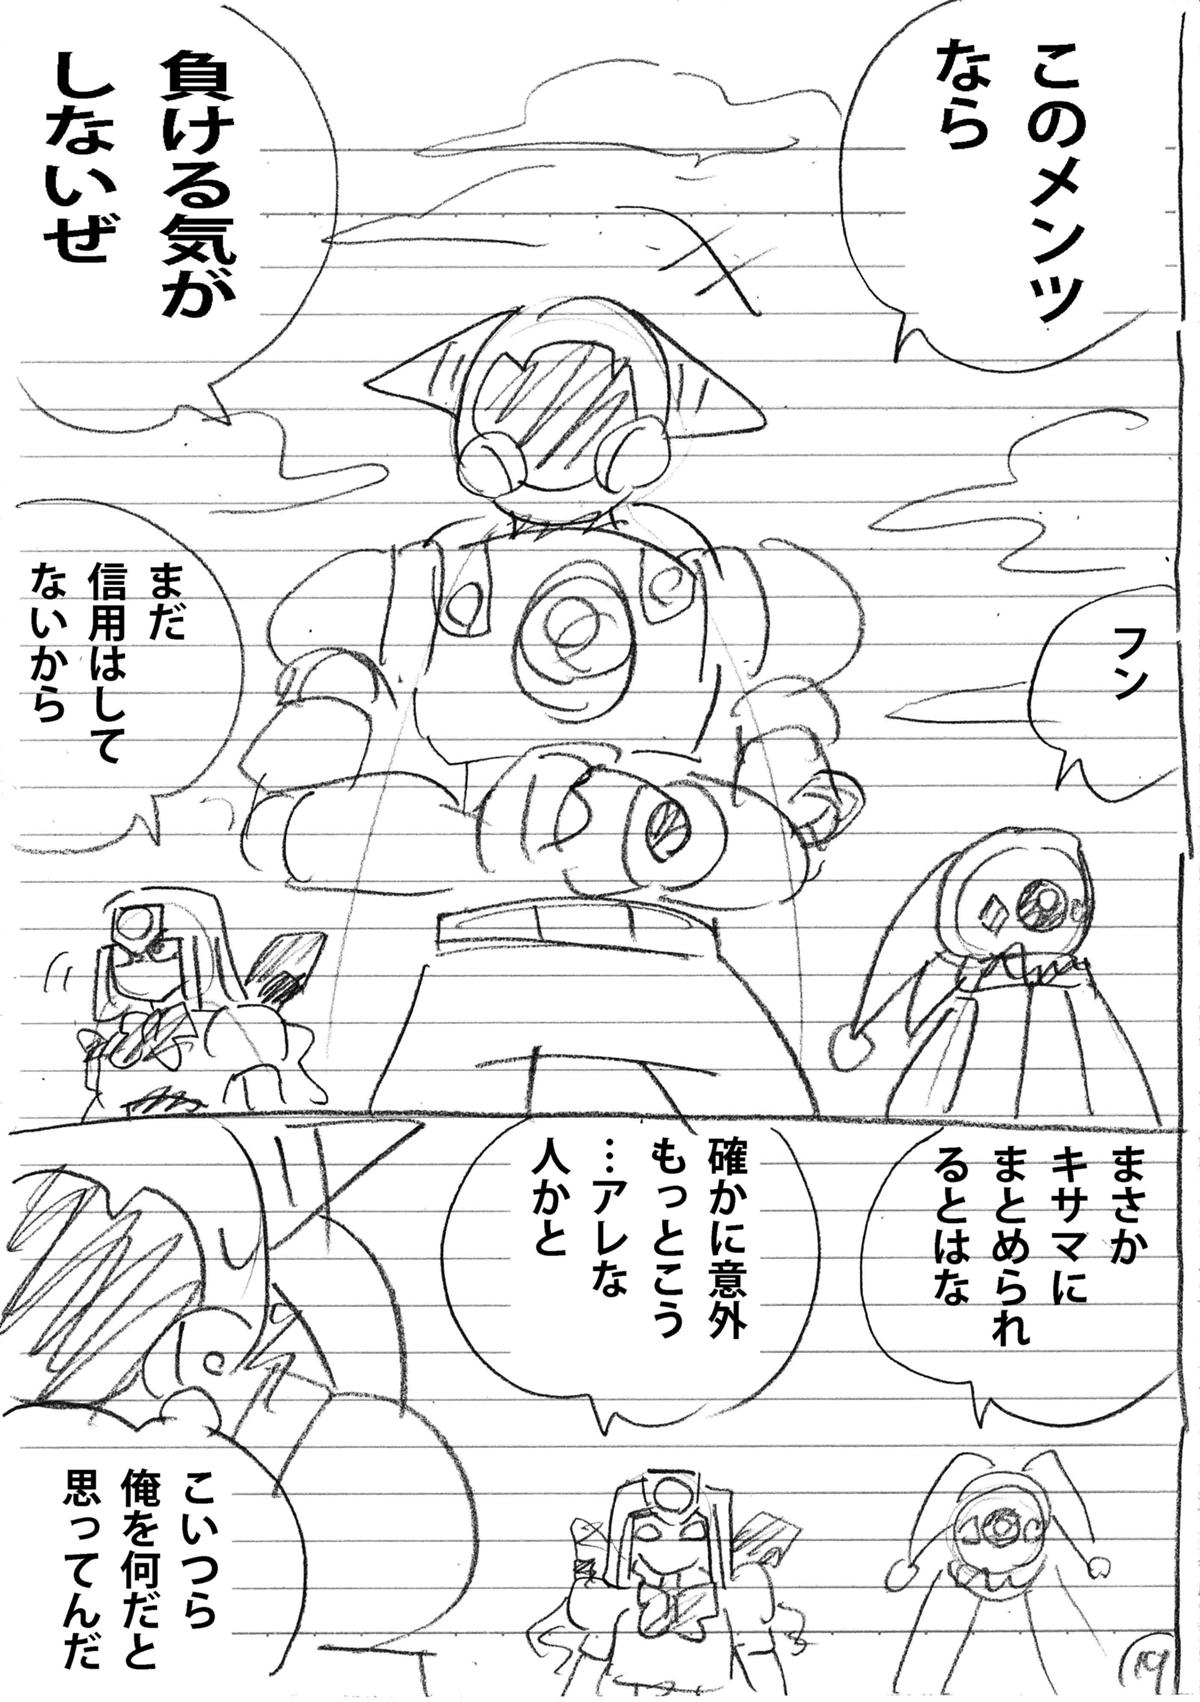 このメンツ
なら
負ける気が
しないぜ
フン
まだ
信用はして
ないから
まさか
キサマに
まとめられ
るとはな
確かに意外
もっとこう
…アレな
人かと
こいつら
俺を何だと
思ってんだ
19